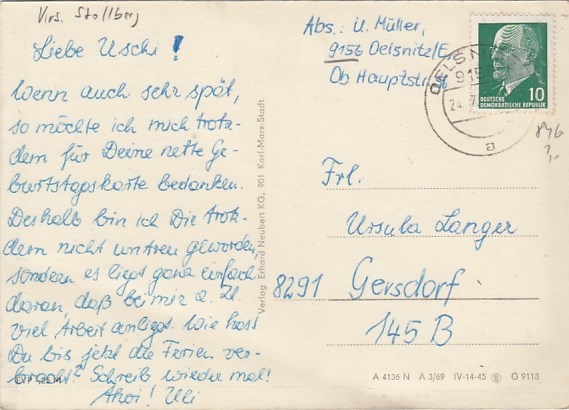 Krs. Stollberg
Liebe Uschi!
Wenn auch sehr spät,
so möchte ich mich trotz-
dem für Deine nette Ge-
burtstagskarte bedanken.
Deshalb bin ich Dir trotz-
dem nicht untreu geworden,
sondern es liegt ganz einfach
daran, daß bei mir z. Zt.
viel Arbeit anliegt. Wie hast
Du bis jetzt die Ferien ver-
bracht? Schreib wieder mal!
Ahoi! Uli
Verlag Erhard Neubert KG, 901 Karl-Marx-Stadt
Abs.: U. Müller,
9156 Oelsnitz/E
Ob Hauptstr.
DEUTSCHE
DEMOKRATISCHE REPUBLIK
10
OELSNITZ
915
24.
a
Frl.
Ursula Langer
8291 Gersdorf
145 B
A 4136 N A 3/69 IV-14-45 G 9113